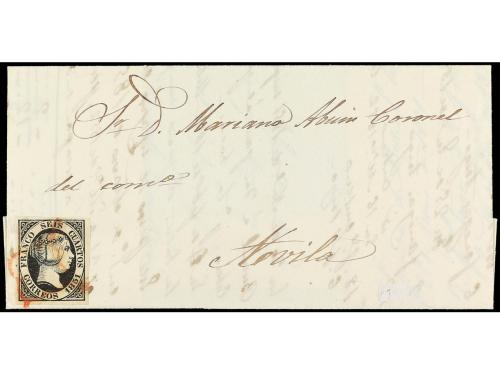 Sr. D. Mariano Abuin Coronel
del com.o
Avila
FRANCO SEIS CUARTOS
CORREOS 1851